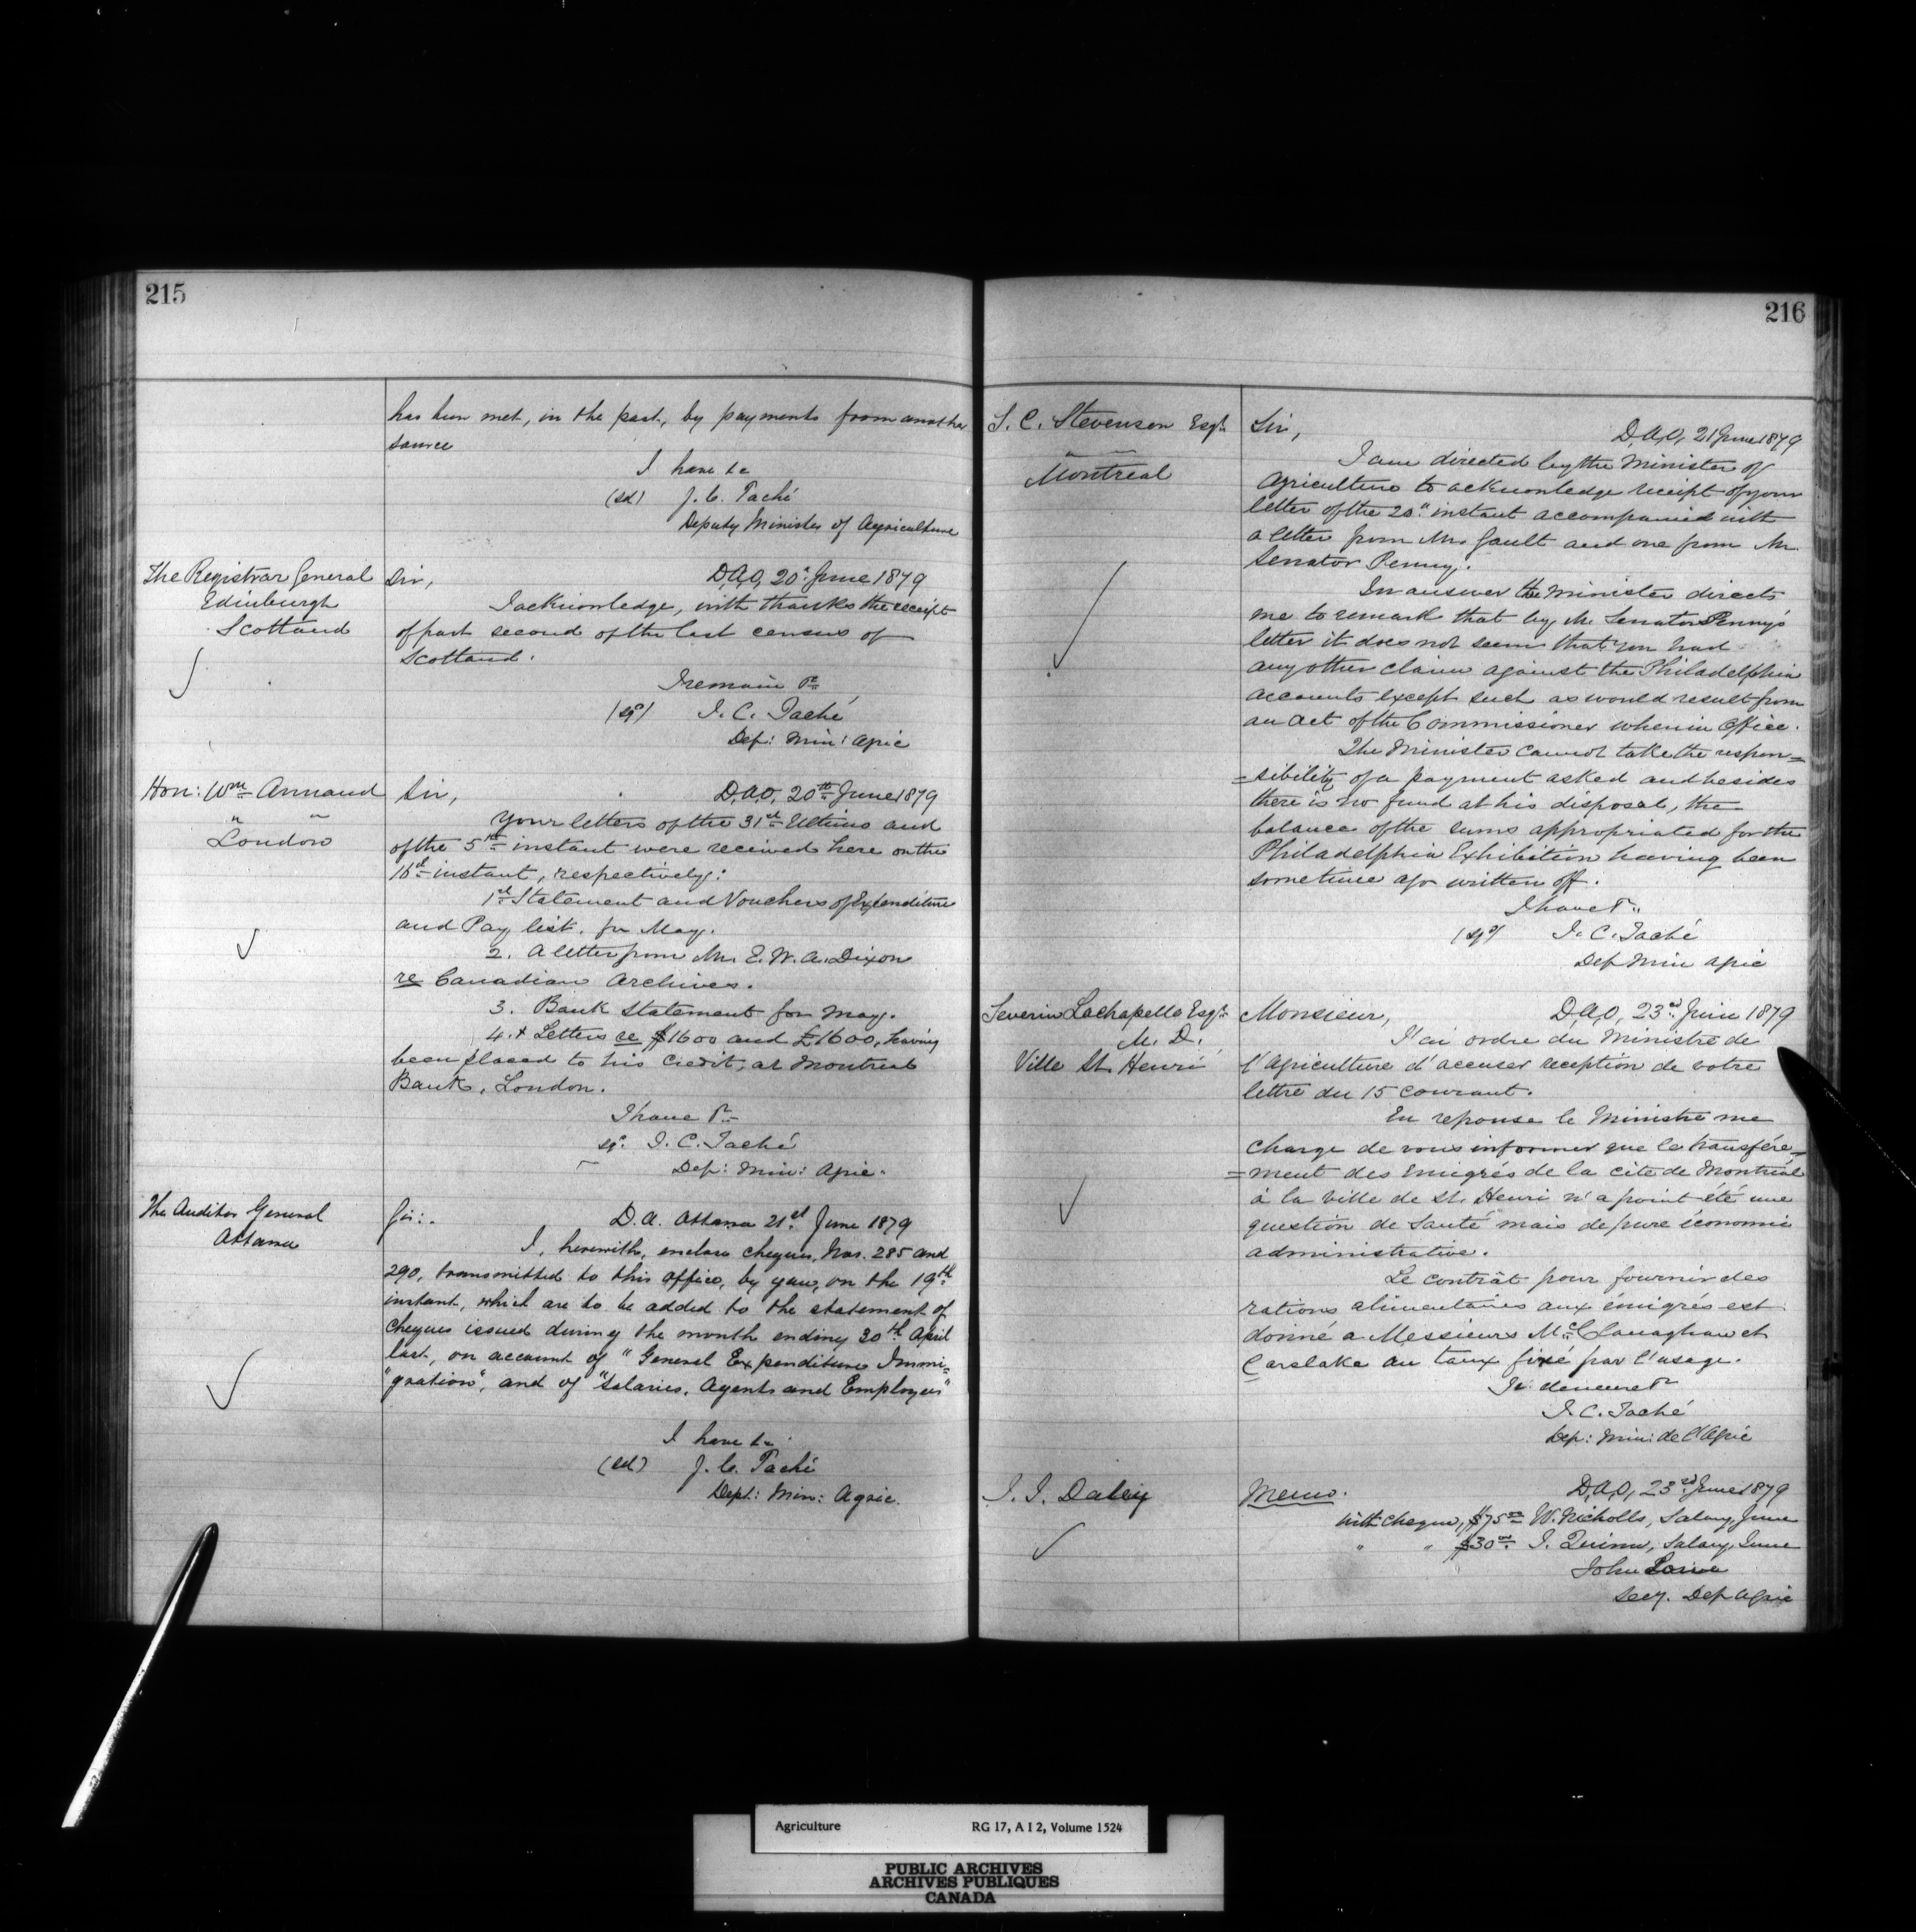 215
has been met, in the past, by payments from another
source
I have &c
(sd) J. C. Taché
Deputy Minister of Agriculture
The Registrar General
Edinburgh
Scotland
Sir,
D,A,O, 20" June 1879
I acknowledge, with thanks the receipt
of part second of the last census of
Scotland.
I remain &c
(sgd) J. C. Taché
Dep: Min: Agric
Hon: Wm Annand
" "
London
Sir,
D,A,O, 20th June 1879
Your letters of the 31st Ultimo and
of the 5th instant were received here on the
instant, respectively:
1st Statement and Vouchers of Expenditure
and Pay list. for May.
2. A letter from Mr. E. W. A. Dixon
re Canadian Archives.
3. Bank Statement for May.
4. Letters re $1600 and £1600, having
been placed to his credit, at Montreal
Bank, London.
I have &c
sgd. J. C. Taché
Dep: Min: Agric.
The Auditor General
Ottawa
Sir:.
D. A. Ottawa 21st June 1879
I, herewith, enclose cheques, Nos. 285 and
290, transmitted to this office, by you, on the 19th
instant, which are to be added to the statement of
cheques issued during the month ending 30th April
last, on account of "General Expenditure Immi=
"gration", and of "Salaries, Agents and Employees"
I have &c
(sd) J. C. Taché
Dept: Min: Agric.
216
S. C. Stevenson Esqr
" "
Montreal
Sir,
D,A,O, 21 June 1879
I am directed by the Minister of
Agriculture to acknowledge receipt of your
letter of the 20" instant accompanied with
a letter from Mr. Gault and one from Mr.
Senator Penny.
In answer the Minister directs
me to remark that by Mr. Senator Penny's
letter it does not seem that you had
any other claim against the Philadelphia
accounts except such as would result from
an act of the Commissioner when in Office.
The Minister cannot take the respon=
=sibility of a payment asked and besides
there is no fund at his disposal, the
balance of the sums appropriated for the
Philadelphia Exhibition having been
sometime ago written off.
I have &c
(sgd) J. C. Taché
Dep Min Agric
Severin Lachapelle Esqr
M. D.
Ville St. Henri
Monsieur,
D,A,O, 23rd Juin 1879
J'ai ordre du Ministre de
l'Agriculture d'accuser reception de votre
lettre du 15 courant.
En reponse le Ministre me
charge de vous informer que le transfére=
=ment des émigrés de la cité de Montréal
à la ville de St. Henri n'a point été une
question de Santé mais de pure économie
administrative.
Le contrât pour fournir des
rations alimentaires aux émigrés est
donné a Messieurs McClanaghan et
Carslake au taux fixé par l'usage.
Je demeure &c
J. C. Taché
Dep: Min: de l'Agric
J. I. Daley
Memo.
D,A,O, 23rd June 1879
With cheque, $75.00 W. Nicholls, Salary, June
" " $30.00 J. Quinn, Salary, June
John Lowe
Secy. Dep Agric
Agriculture RG 17, A I 2, Volume 1524
PUBLIC ARCHIVES
ARCHIVES PUBLIQUES
CANADA